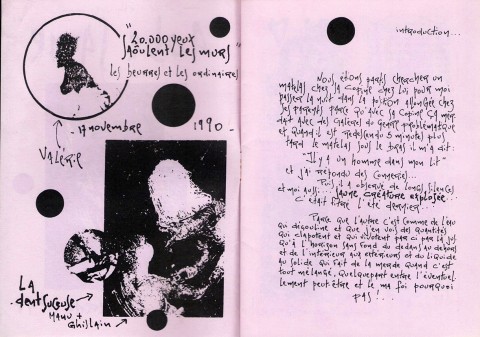 "20.000 yeux
saoulent les murs"
les beurres et les ordinaires
17 novembre 1990-
Valérie
LA
dent suceuse
MANU +
Ghislain
introduction...
Nous étions partis chercher un
matelas chez sa copine chez lui pour moi
passer la nuit dans la position allongée chez
ses parents parce qu'avec sa copine ça mer
dait avec des galères du genre problématique
et quand il est redescendu 5 minutes plus
tard le matelas sous le bras il m'a dit:
"Il y a un homme dans mon lit"
et j'ai répondu des conneries...
Puis il a observé de longs silences
et moi aussi: jaune créature explosée...
C'était l'été dernier
Parce que l'autre c'est comme de l'eau
qui dégouline et que j'en vois des quantités
qui clapotent et qui vivotent par ci par là sol
qu'à l'horizon sans fond du dedans au dehors
et de l'intérieur aux extérieurs et du liquide
au solide qui fait de la merde quand c'est
tout mélangé. Quelquepart entre l'éventuel
lement peut-être et le ma foi pourquoi
pas!...